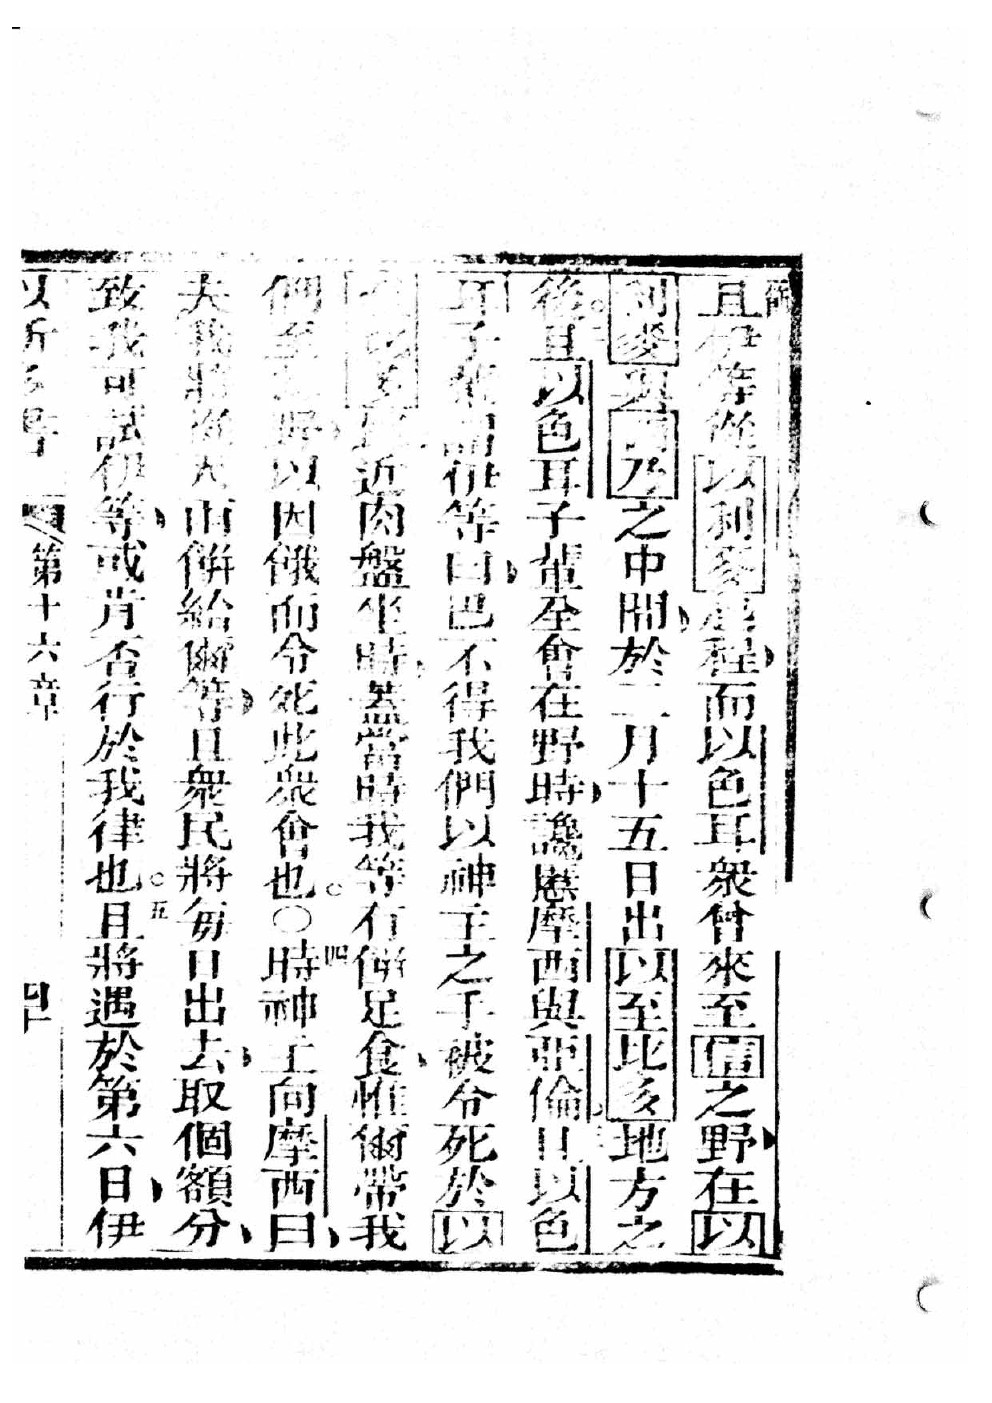 且伊等從以利麥起程而以色耳衆會來至信之野在以
利麥與西乃之中間於二月十五日出以至比多地方之
後且以色耳子輩全會在野時讒懟摩西與亞倫且以色
耳子輩謂伊等曰巴不得我們以神主之手被令死於以
至比多近肉盤坐時蓋當時我等有餅足食惟爾帶我
們至野以因餓而令死此衆會也○時神主向摩西曰
夫我將從天雨餅給爾等且衆民將每日出去取個額分
致我可試伊等或肯否行於我律也且將遇於第六日伊
四
五
第十六章